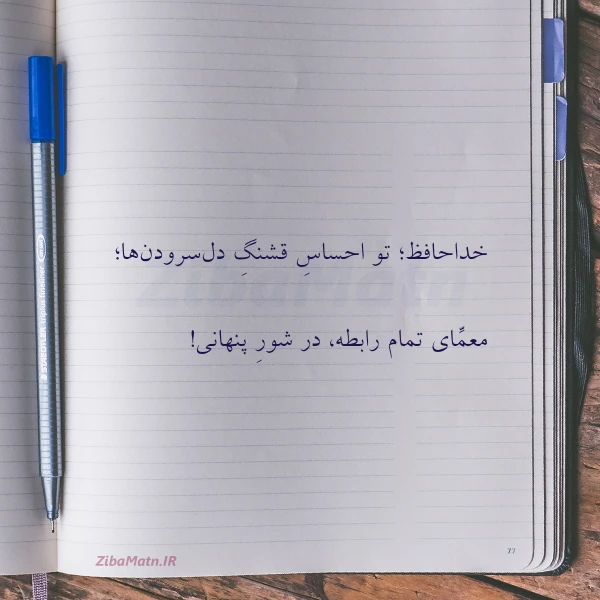 خداحافظ؛ تو احساسِ قشنگِ دل‌سرودن‌ها؛
ZibaMatn
معمِّای تمام رابطه، در شورِ پنهانی!
ZibaMatn.IR
77